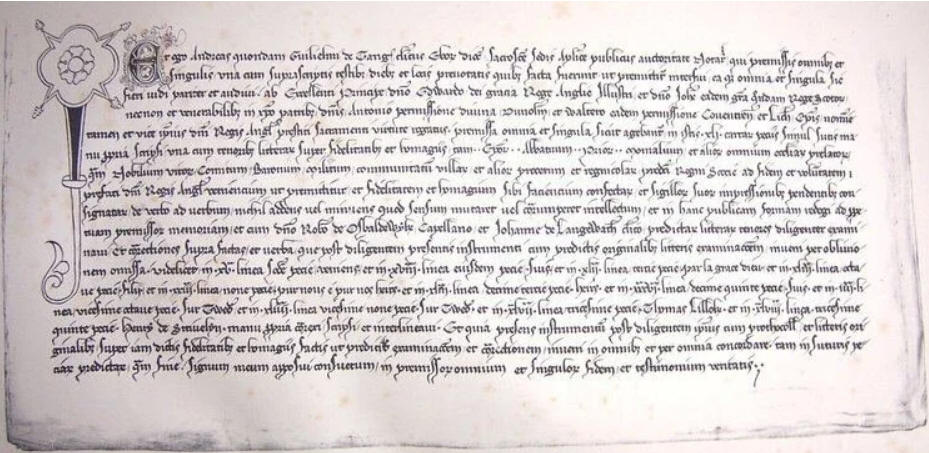 Et ego Andreas quondam Guilielmi de Tang' clicus Ebor dioc' Sacrosce Sedis Aplice publicus auctoritate Notar' qui premissis omnibz et
singulis vna cum suprascriptis testibz diebz et locis prenotatis quibz facta fuerunt ut premittitur interfui ea qz omnia et singula sic
fieri vidi pariter et audiui ab Excellenti Principe dno Edwardo dei gratia Rege Anglie Illustri et dno Johe eadem gra quondam Rege Scotor'
necnon et venerabilibz in xpo patribz dnis Antonio permissione diuina Dunolm' et Waltero eadem permissione Couentren' et Lich' Epis
tamen et vice ipius dni Regis Angl' prestiti sacramenti virtute rogatus premissa omnia et singula sicut agebant' in istis xl
nu ppria scripsi vna cum tenoribz litterar' super fidelitatibz et homagiis tam Abbatum Prior' monialium et alior' omnium ecclar' prelator'
qm Nobilium viror' Comitum Baronum militum communitatum villar' et alior' procerum et regnicolar' predci Regni Scocie ad fidem et voluntatem
prefati dni Regis Angl' veniencium ut premittitur et fidelitatem et homagium sibi faciencium confectar' et sigillor' suor' impressionibz pendentibz con
signatar' de verbo ad verbum nichil addens vel minuens quod sensum mutaret vel corrumperet intellectum et in hanc publicam formam redegi ad ppe
tuam premissor' memoriam et cum dno Robto de Capellano et Johanne de Langetwath clico predictar' litterar' tenores diligenter exami
naui Et correctiones supra factas et verba que post diligentem presentis instrumenti cum predictis originalibz litteris examinacoem inueni per obliuio
nem omissa videlicet in xv linea pecie et in xviii linea eiusdem pecie suis et in xlii linea tercie pecie par la grace dieu et in linea octa
ue pecie et in linea none pecie pur nous et pur noz heirs et in linea decime tercie pecie heirs et in linea decime quinte pecie suis et in li
nea vicesime octaue pecie sur Twede et in linea vicesime none pecie sur Twede et in linea tricesime pecie Thomas et in linea tricesime
quinte pecie Henry de manu ppria scripsi et interlineaui Et quia presens instrumentum post diligentem ipius cum prothocoll' et litteris ori
ginalibz super iam dictis fidelitatibz et homagiis factis ut predicitur examinacoem et correctionem inueni in omnibz et per omnia concordare tam in suturis pe
ciar' predictar' qm fine signum meum apposui consuetum in premissor' omnium et singulor' fidem et testimonium veritatis